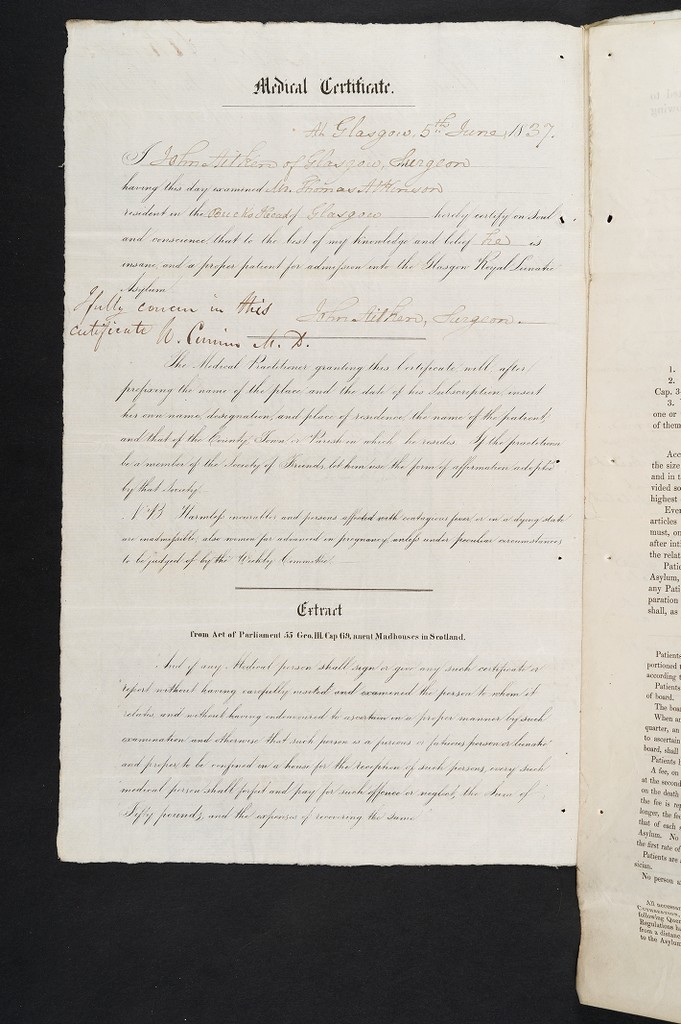 Medical Certificate.
At Glasgow, 5th June, 1837.
I John Aitken of Glasgow, Surgeon
having this day examined Mr. Thomas Atkinson
resident in the Bucks Head of Glasgow hereby certify on soul
and conscience, that to the best of my knowledge and belief he is
insane, and a proper patient for admission into the Glasgow Royal Lunatic
Asylum
I fully concur in this
John Aitken, Surgeon.
certificate W. M. D.
The Medical Practitioner granting this Certificate, will, after
prefixing the name of the place, and the date of his Subscription, insert
his own name, designation, and place of residence, the name of the patient,
and that of the County, Town or Parish in which he resides. If the practitioner
be a member of the Society of Friends, let him use the form of affirmation adopted
by that Society
N.B. Harmless incurables and persons affected with contagious fever or in a dying state
are inadmissible; also women far advanced in pregnancy, unless under peculiar circumstances
to be judged of by the Weekly Committee
Extract
from Act of Parliament 55 Geo. III. Cap 69, anent Madhouses in Scotland.
And if any Medical person shall sign or give any such certificate or
report without having carefully visited and examined the person to whom it
relates, and without having endeavoured to ascertain in a proper manner by such
examination and otherwise that such person is a furious or fatuous person or lunatic
and proper to be confined in a house for the reception of such persons, every such
medical person shall forfeit and pay for such offence or neglect, the Sum of
Fifty pounds, and the expenses of recovering the same
1.
2.
Cap. 3
3.
one or
of them
Acc
the size
and in t
vided so
highest
Ever
articles
must, on
after int
the relat
Patie
Asylum,
any Pati
paration
shall, as
Patients
portioned t
according t
Patients
of board.
The boa
When an
quarter, an
to ascertain
board, shall
Patients h
A fee, on
at the second
on the death
the fee is rep
longer, the fee
that of each s
Asylum. No
the first rate of
Patients are
sician.
No person u
All necessar
following Quer
Regulations ha
from a distanc
to the Asylum